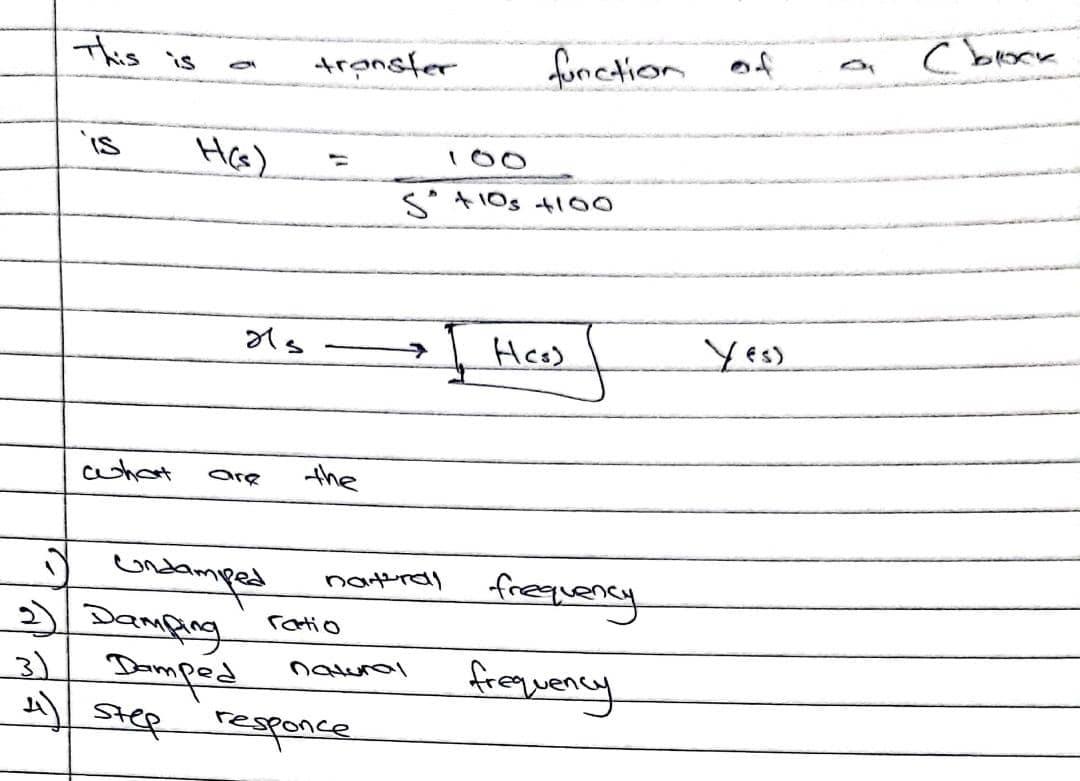 This is a transfer function of a C block
is H(s) = 100
S² + 10s + 100
xs → H(s) Y(s)
what are the
1) Undamped natural frequency
2) Damping ratio
3) Damped natural frequency
4) Step responce